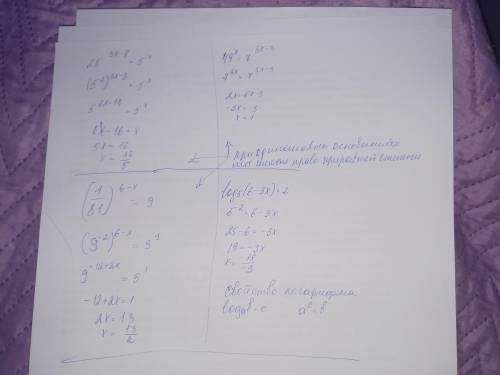 25^{3x-8} = 5^x
(5^2)^{3x-8} = 5^x
5^{6x-16} = 5^x
6x-16=x
5x=16
x = 16/5
49^x = 7^{5x-3}
7^{2x} = 7^{5x-3}
2x=5x-3
-3x=-3
x=1
при одинаковых основаниях
мы имеем право приравнять степени
(1/81)^{6-x} = 9
(9^{-2})^{6-x} = 9^1
9^{-12+2x} = 9^1
-12+2x=1
2x=13
x = 13/2
log_5(6-3x)=2
5^2=6-3x
25-6=-3x
19=-3x
x = 19/-3
Свойство логарифма
log_a b=c a^c=b